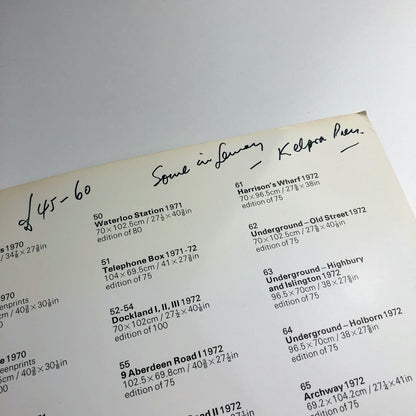 £45-60
Some in
Kelpra Press.
s 1970
/ 34⅞ × 27⅜in
1970
eenprints
40⅜ × 30⅛in
e 1970
eenprints
40⅜ × 30⅛in
50
Waterloo Station 1971
70 × 102.5cm / 27½ × 40⅜in
edition of 80
51
Telephone Box 1971-72
104 × 69.5cm / 41 × 27⅜in
edition of 75
52-54
Dockland I, II, III 1972
70 × 102cm / 27½ × 40⅛in
edition of 100
55
9 Aberdeen Road I 1972
102.5 × 69.8cm / 40⅜ × 27½in
edition of 75
Road II 1972
61
Harrison's Wharf 1972
70 × 96.5cm / 27⅝ × 38in
edition of 75
62
Underground – Old Street 1972
70 × 102.5cm / 27⅝ × 40⅜in
edition of 75
63
Underground – Highbury
and Islington 1972
96.5 × 70cm / 38 × 27⅝in
edition of 75
64
Underground – Holborn 1972
96.5 × 70cm / 38 × 27⅝in
edition of 75
65
Archway 1972
69.2 × 104.2cm / 27¼ × 41in
edition of 75